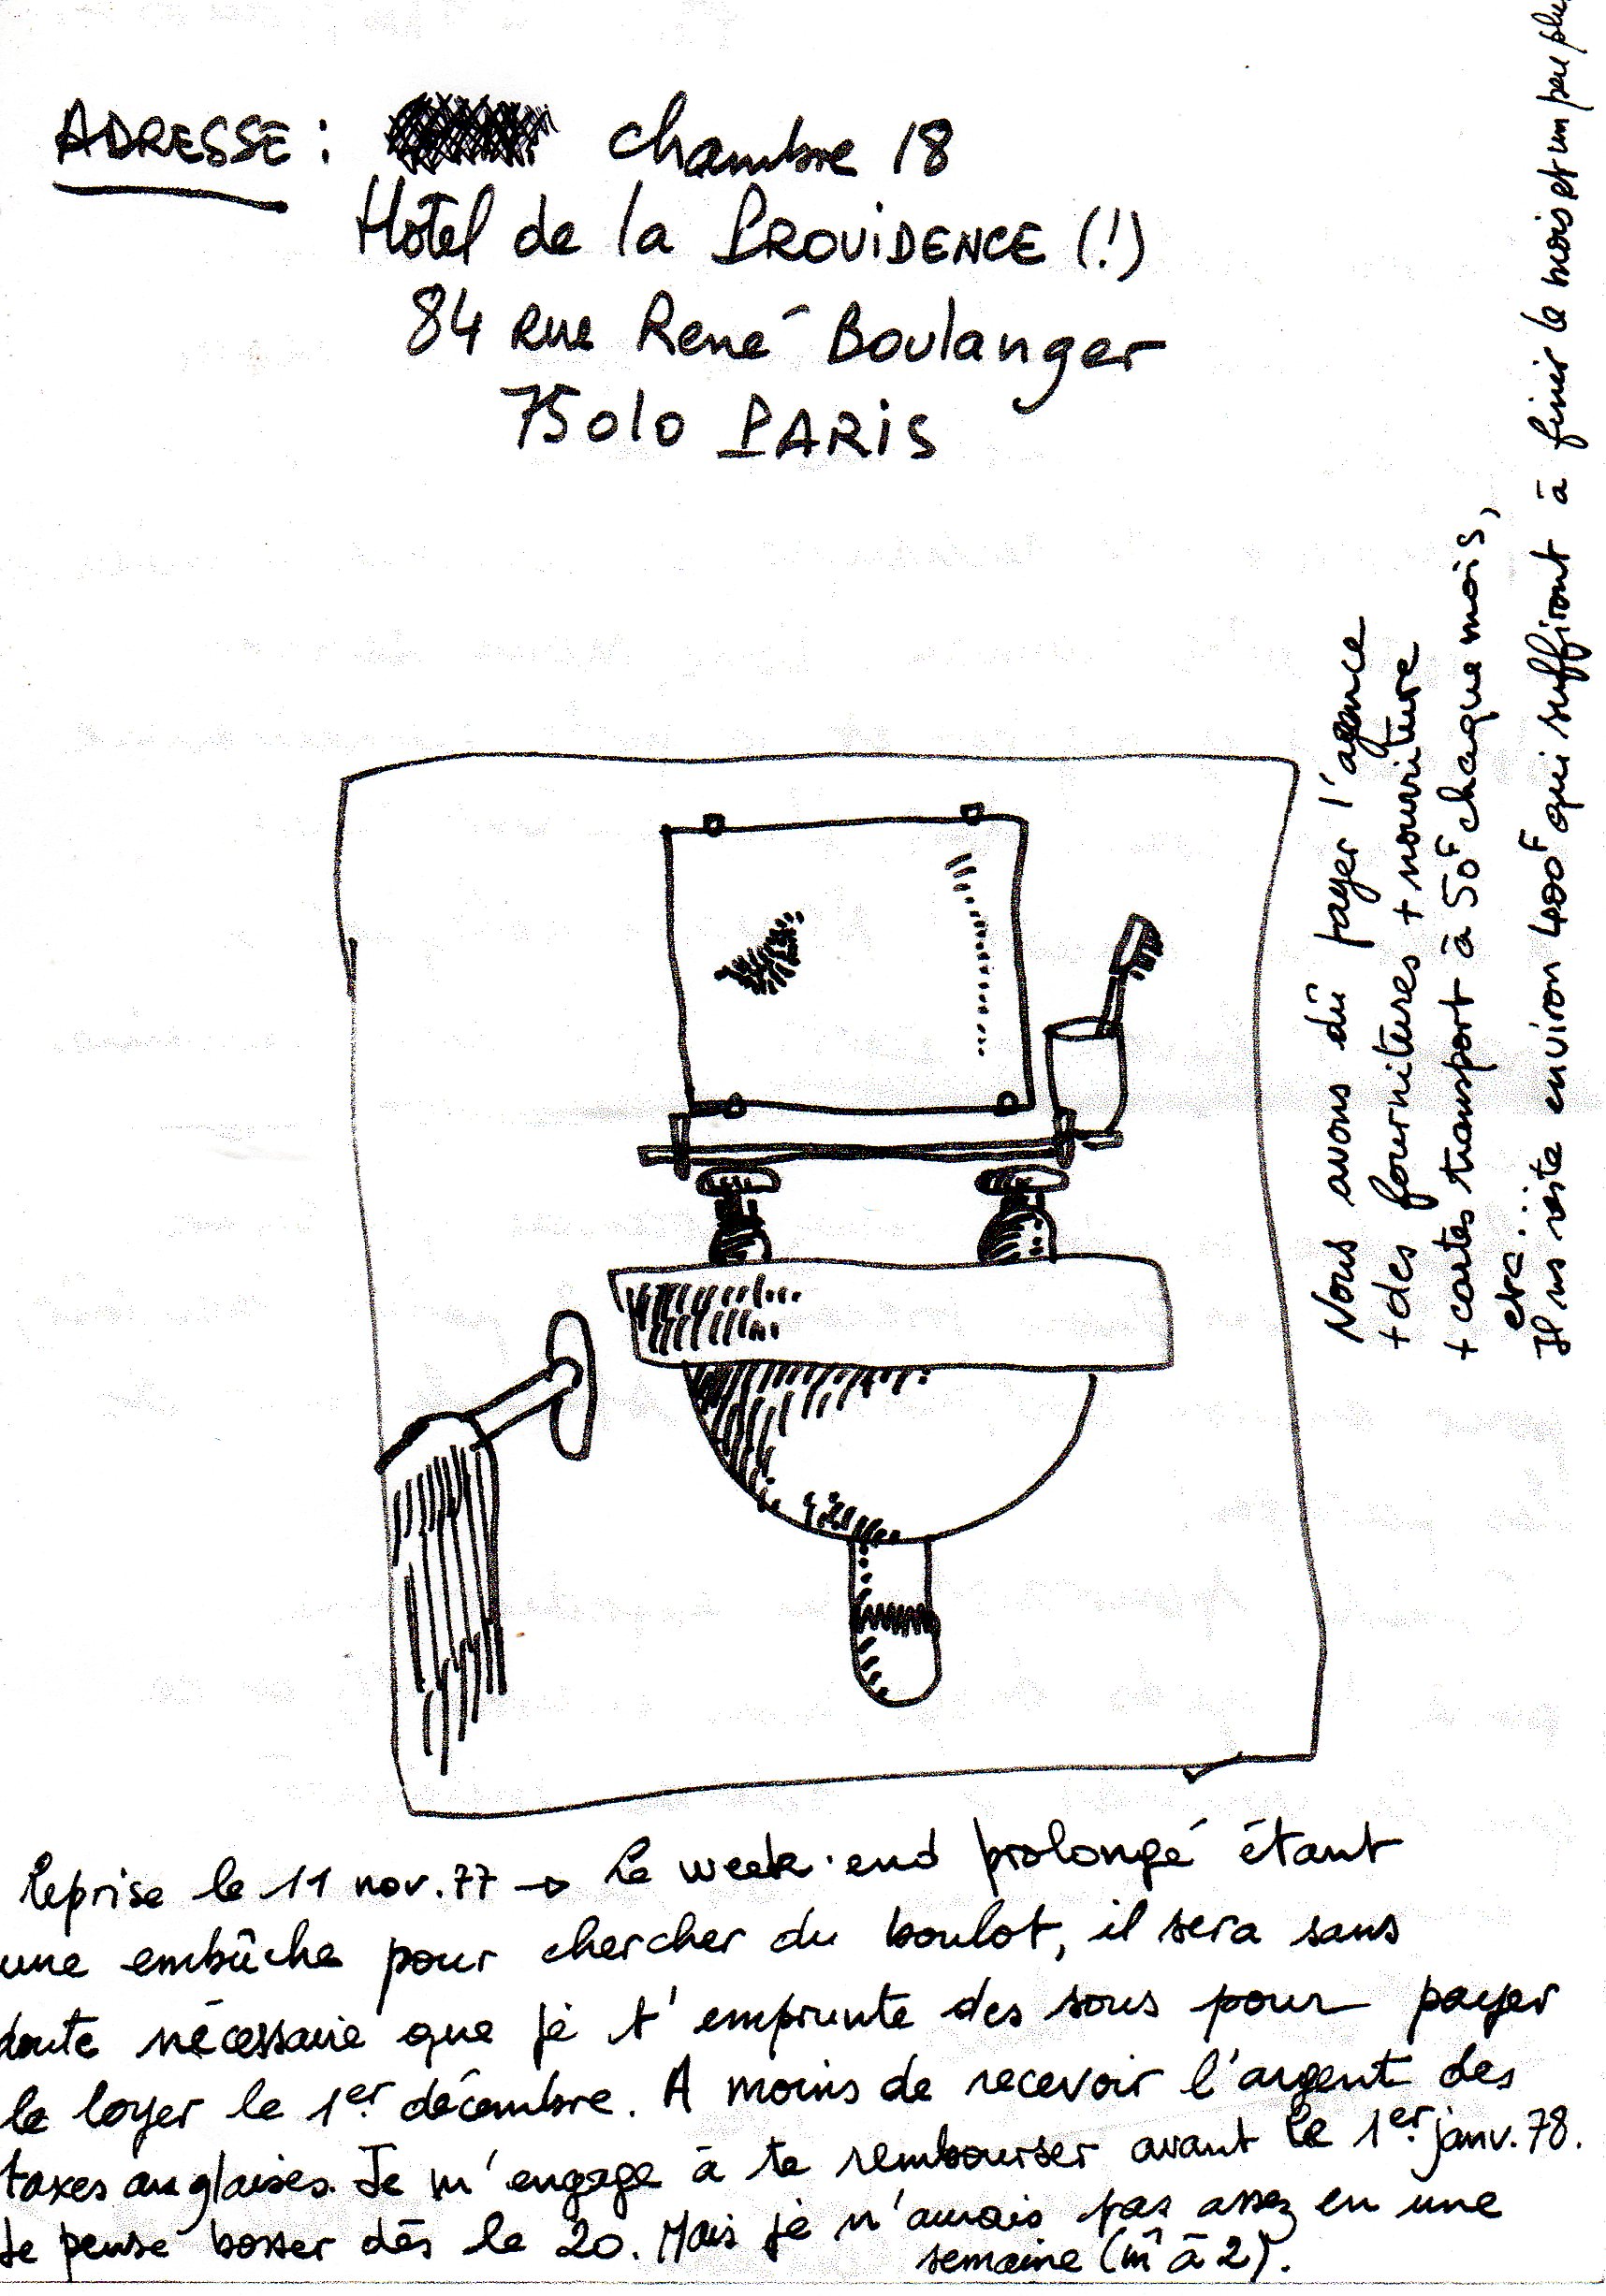 ADRESSE : chambre 18
Hôtel de la PROVIDENCE (!)
84 Rue René Boulanger
75010 PARIS
Nous avons dû payer l'agence
+ des fournitures + nourriture
+ cartes transport à 50F chaque mois,
etc...
Il ns reste environ 400F qui suffiront à finir le mois et un peu plus
Reprise le 11 nov. 77 → Le week-end prolongé étant
une embûche pour chercher du boulot, il sera sans
doute nécessaire que je t'emprunte des sous pour payer
le loyer le 1er décembre. A moins de recevoir l'argent des
taxes anglaises. Je m'engage à te rembourser avant le 1er janv. 78.
Je pense bosser dès le 20. Mais je n'aurais pas assez en une
semaine (m̂ à 2).